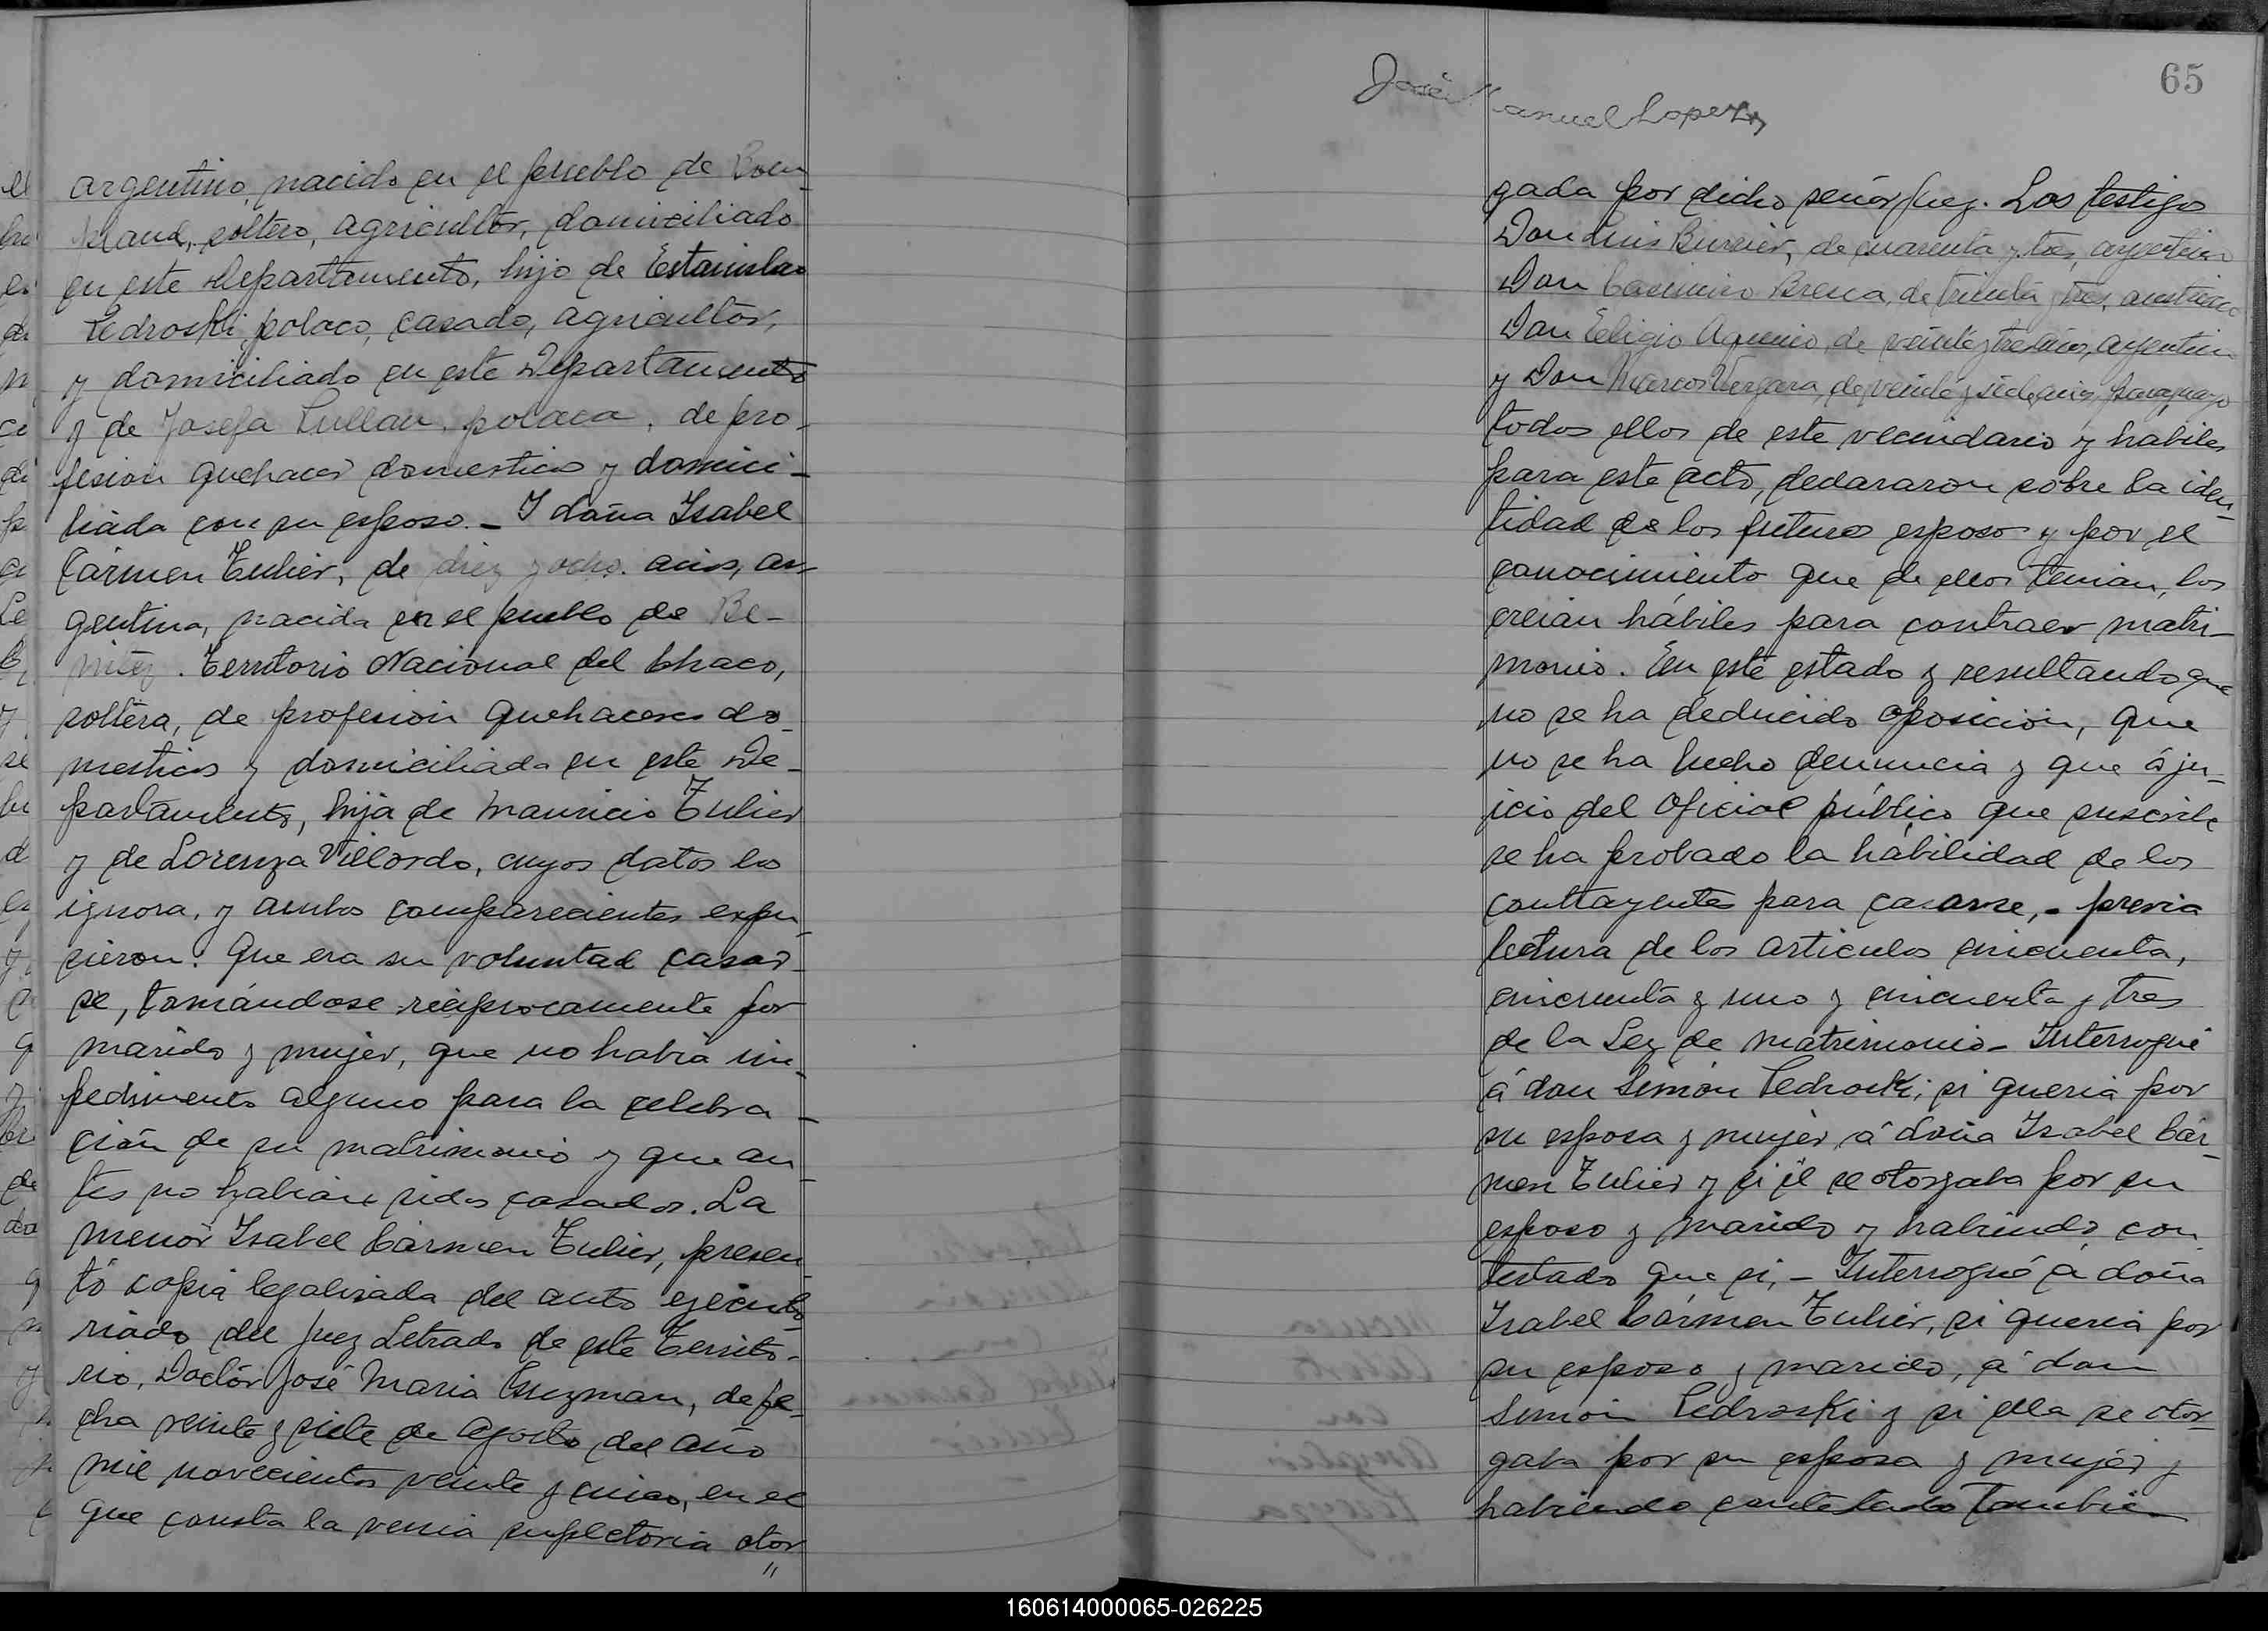 argentino, nacido en el pueblo de Bon-
pland, soltero, agricultor, domiciliado
en este Departamento, hijo de Estanislao
Pedroski, polaco, casado, agricultor,
y domiciliado en este Departamento
y de Josefa Lullan, polaca, de pro-
fesion quehacer domestico y domici-
liada con su esposo. - I doña Isabel
Cármen Eulier, de diez y ocho años, ar-
gentina, nacida en el pueblo de Be-
nitez. Territorio Nacional del Chaco,
soltera, de profesion quehaceres do-
mesticos y domiciliada en este De-
partamento, hija de Mauricio Eulier
y de Lorenza Villordo, cuyos datos los
ignora, y ambos comparecientes expu-
sieron: Que era su voluntad casar-
se, tomándose reciprocamente por
marido y mujer, que no habia im-
pedimento alguno para la celebra-
ción de su matrimonio y que an-
tes no habian sidos casados. La
menor Isabel Cármen Eulier, presen-
tó copia legalizada del auto ejecuto-
riado del Juez Letrado de este Territo-
rio, Doctór José Maria Guzman, de fe-
cha veinte y siete de Agosto del año
mil novecientos veinte y cinco, en el
que consta la venia supletoria otor"
65
José Manuel Lopez
gada por dicho señor Juez. Los testigo
Don Luis Burrier, de cuarenta y tres, argentino
Don Casimiro Bresca, de treinta y tres, austriaco
Don Eligio Aquino, de veinte y tres años, argentino
y Don Marcos Vergara, de veinte y siete años, paraguayo
todos ellos de este vecindario y habiles
para este acto, declararon sobre la iden-
tidad de los futuros esposos y por el
conocimiento que de ellos tenian, los
creian hábiles para contraer matri-
monio. En este estado y resultando que
no se ha deducido oposicion, que
no se ha hecho denuncia y que á ju-
icio del Oficial público que suscribe
se ha probado la hábilidad de los
contrayentes para casarse, - previa
lectura de los articulos cincuenta,
cincuenta y uno y cincuenta y tres
de la Ley de matrimonio - Interrogué
á don Simón Pedroski; si queria por
su esposa y mujer á doña Isabel Cár-
men Eulier y si él se otorgaba por su
esposo y marido y habiendo con
testado que si, - Interrogué á doña
Isabel Cármen Eulier, si queria por
su esposo y marido, á don
Simón Pedroski y si ella se otor-
gaba por su esposa y mujer y
habiendo contestado tambien
160614000065-026225